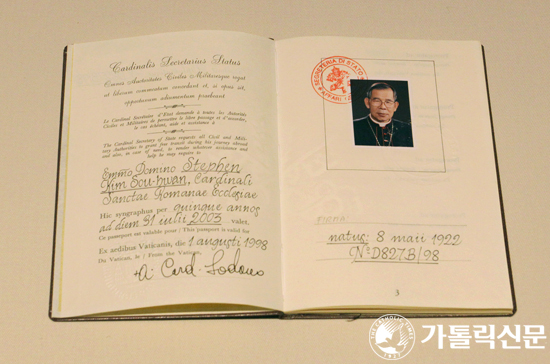 Cardinalis Secretarius Status
Omnes Auctoritates Civiles Militaresque rogat
ut liberum commeatum concedant et, si opus sit,
opportunum adiumentum praebeant
Le Cardinal Secrétaire d'Etat demande à toutes les Autorités
Civiles et Militaires de permettre le libre passage et d'accorder,
le cas échéant, aide et assistance à
The Cardinal Secretary of State requests all Civil and Mili-
tary Authorities to grant free transit during his journey abroad
and also, in case of need, to render whatever assistance and
help he may require to
Emmo Domino Stephen
Kim Sou-hwan, Cardinali
Sanctae Romanae Ecclesiae
Hic syngraphus per quinque annos
ad diem 31 iulii 2003 valet.
Ce passeport est valable pour / This passport is valid for
Ex aedibus Vaticanis, die 1 augusti 1998
Du Vatican, le / From the Vatican,
+A. Card. Sodano
SEGRETERIA DI STATO
AFFARI
natus: 8 maii 1922
N° D827B/98
3
THE CATHOLIC TIMES
1927
가톨릭신문